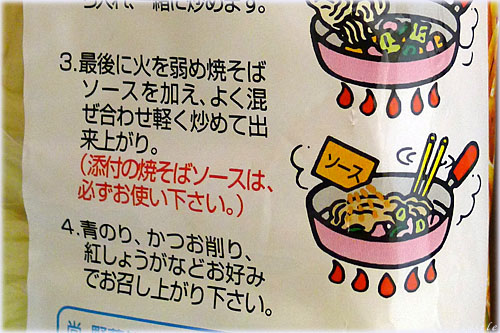 一緒に炒めます。
3.最後に火を弱め焼そば
ソースを加え、よく混
ぜ合わせ軽く炒めて出
来上がり。
(添付の焼そばソースは、
必ずお使い下さい。)
4.青のり、かつお削り、
紅しょうがなどお好み
でお召し上がり下さい。
ソース